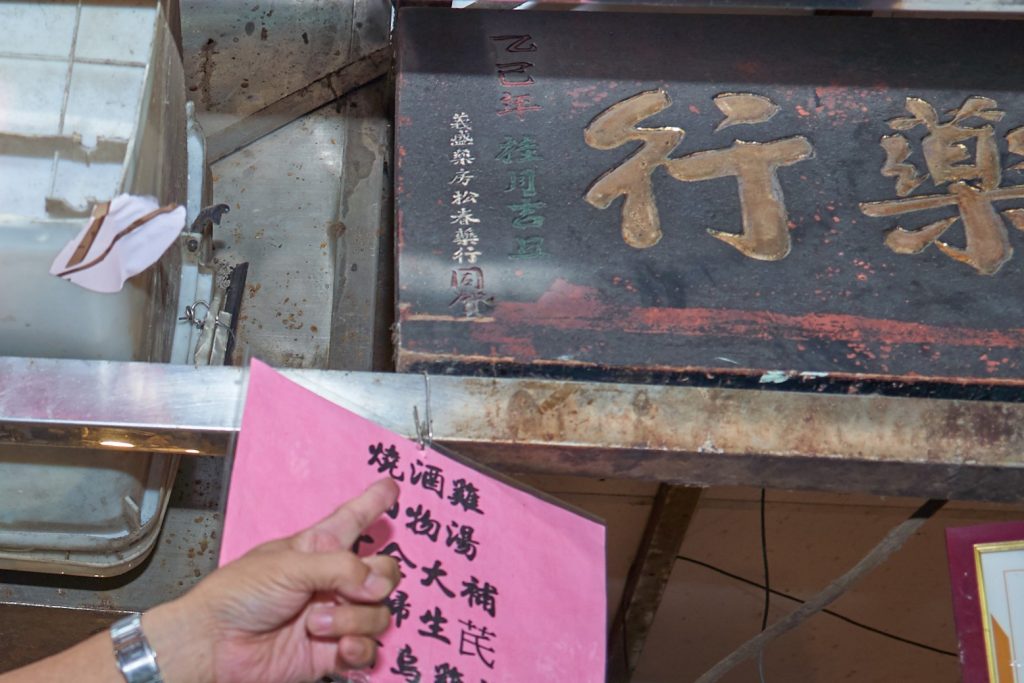 藥行
乙巳年 桂月吉旦
義盛藥房松春藥行 同賀
燒酒雞
物湯
全大補
歸生芪
烏雞